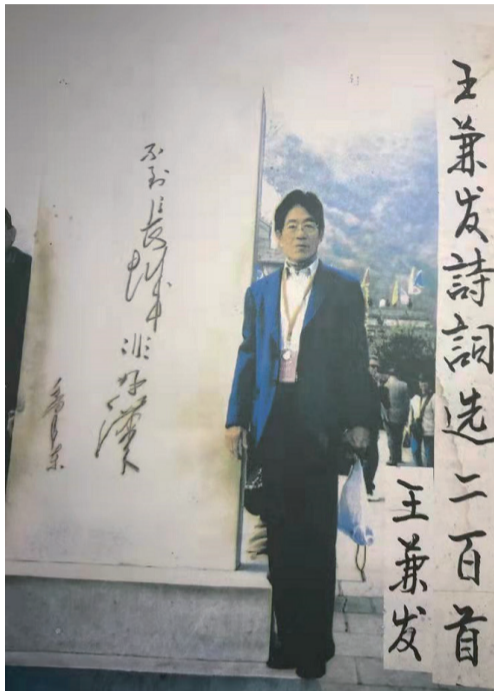 王兼发詩詞选二百首
王兼发
不到長城非好漢
毛泽东